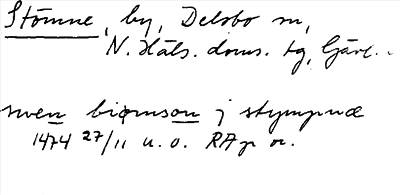 Stömne, by, Delsbo sn,
N. Häls. doms. tg, Gävl..
swen biørnson j stympnæ
1474 27/11 u. o. RAp or.